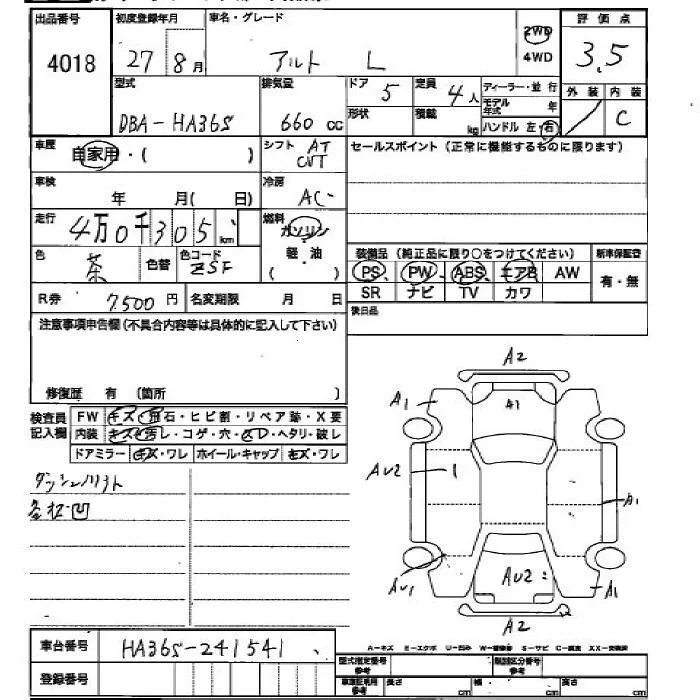 出品番号 初度登録年月 車名・グレード 評価点
4018 27 8月 アルト L 2WD 4WD 3.5
型式 排気量 ドア 5 定員 4人 ディーラー・並行 外装 内装
DBA-HA36S 660cc 形状 積載 kg モデル年式 年 C
ハンドル 左・右
車歴 自家用・( ) シフト AT CVT セールスポイント (正常に機能するものに限ります)
車検 年 月( 日) 冷房 AC
走行 4万0千305km 燃料 ガソリン
軽油
( )
色 茶 色替 色コード ZSF 装備品 (純正品に限り○をつけてください) 新車保証書
PS PW ABS エアB AW 有・無
R券 7500円 名変期限 月 日 SR ナビ TV カワ
注意事項申告欄(不具合内容等は具体的に記入して下さい) 後日品
修復歴 有 (箇所 )
検査員 FW キズ・飛石・ヒビ割・リペア跡・X要
記入欄 内装 キズ・汚レ・コゲ・穴・スレ・ヘタリ・破レ
ドアミラー キズ・ワレ ホイール・キャップ キズ・ワレ
A2
A1 A1
AU2 A1
AU1 AU2 A1
A2
車台番号 HA36S-241541
A-キズ E-エクボ U-凹ミ W-補修跡 S-サビ C-腐食 XX-交換済
登録番号 型式指定番号 参考 類別区分番号 参考
長さ cm 幅 cm 高さ cm